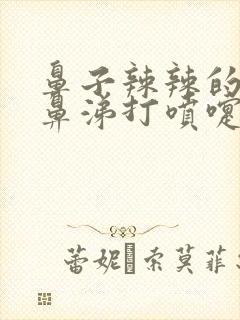 鼻子辣辣的
鼻涕打噴嚏
蕾妮 索莫菲